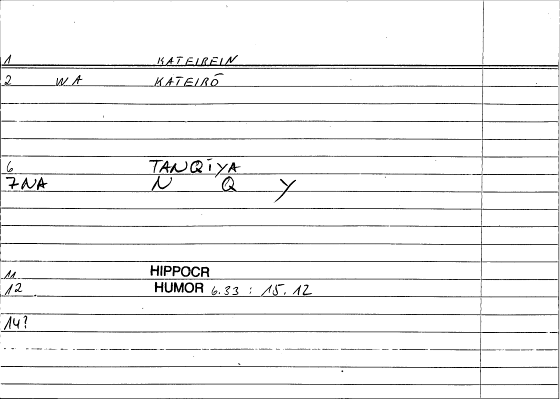 1 KATEIREIN
2 WA KATEIRŌ
6 TANQĪYA
7NA N Q Y
11 HIPPOCR
12 HUMOR 6.33 : 15.12
14?